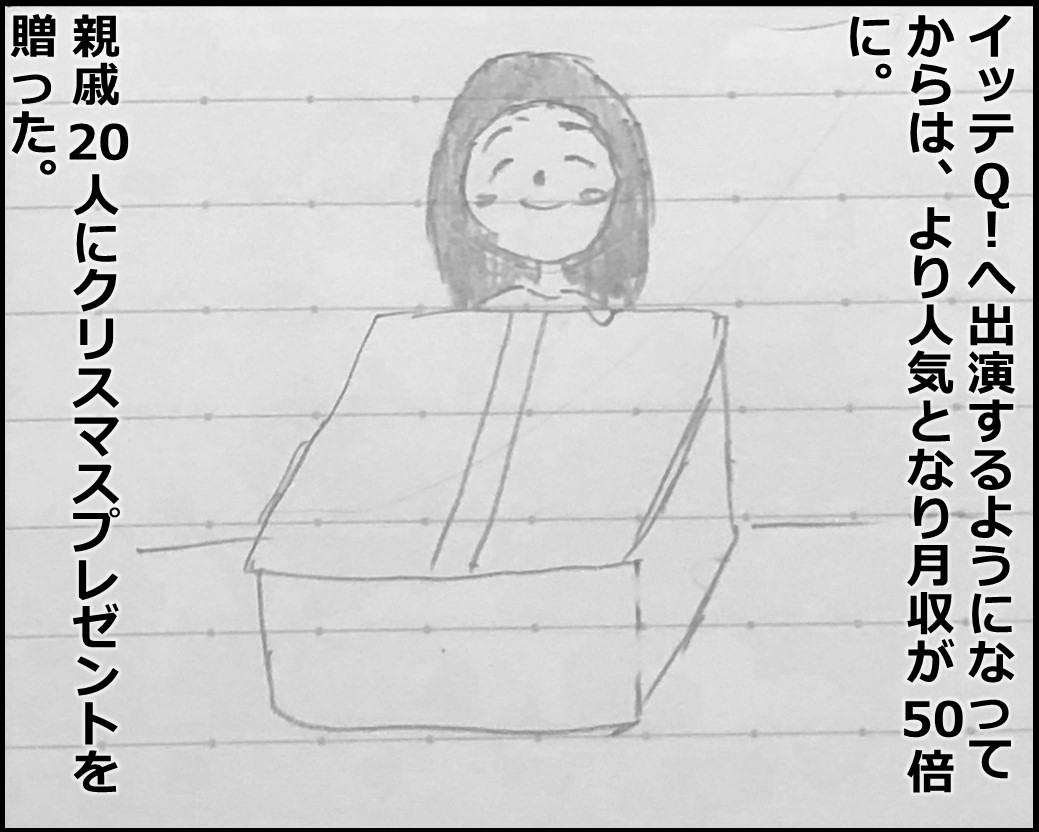 イッテQ！へ出演するようになって
からは、より人気となり月収が50倍
に。
親戚20人にクリスマスプレゼントを
贈った。